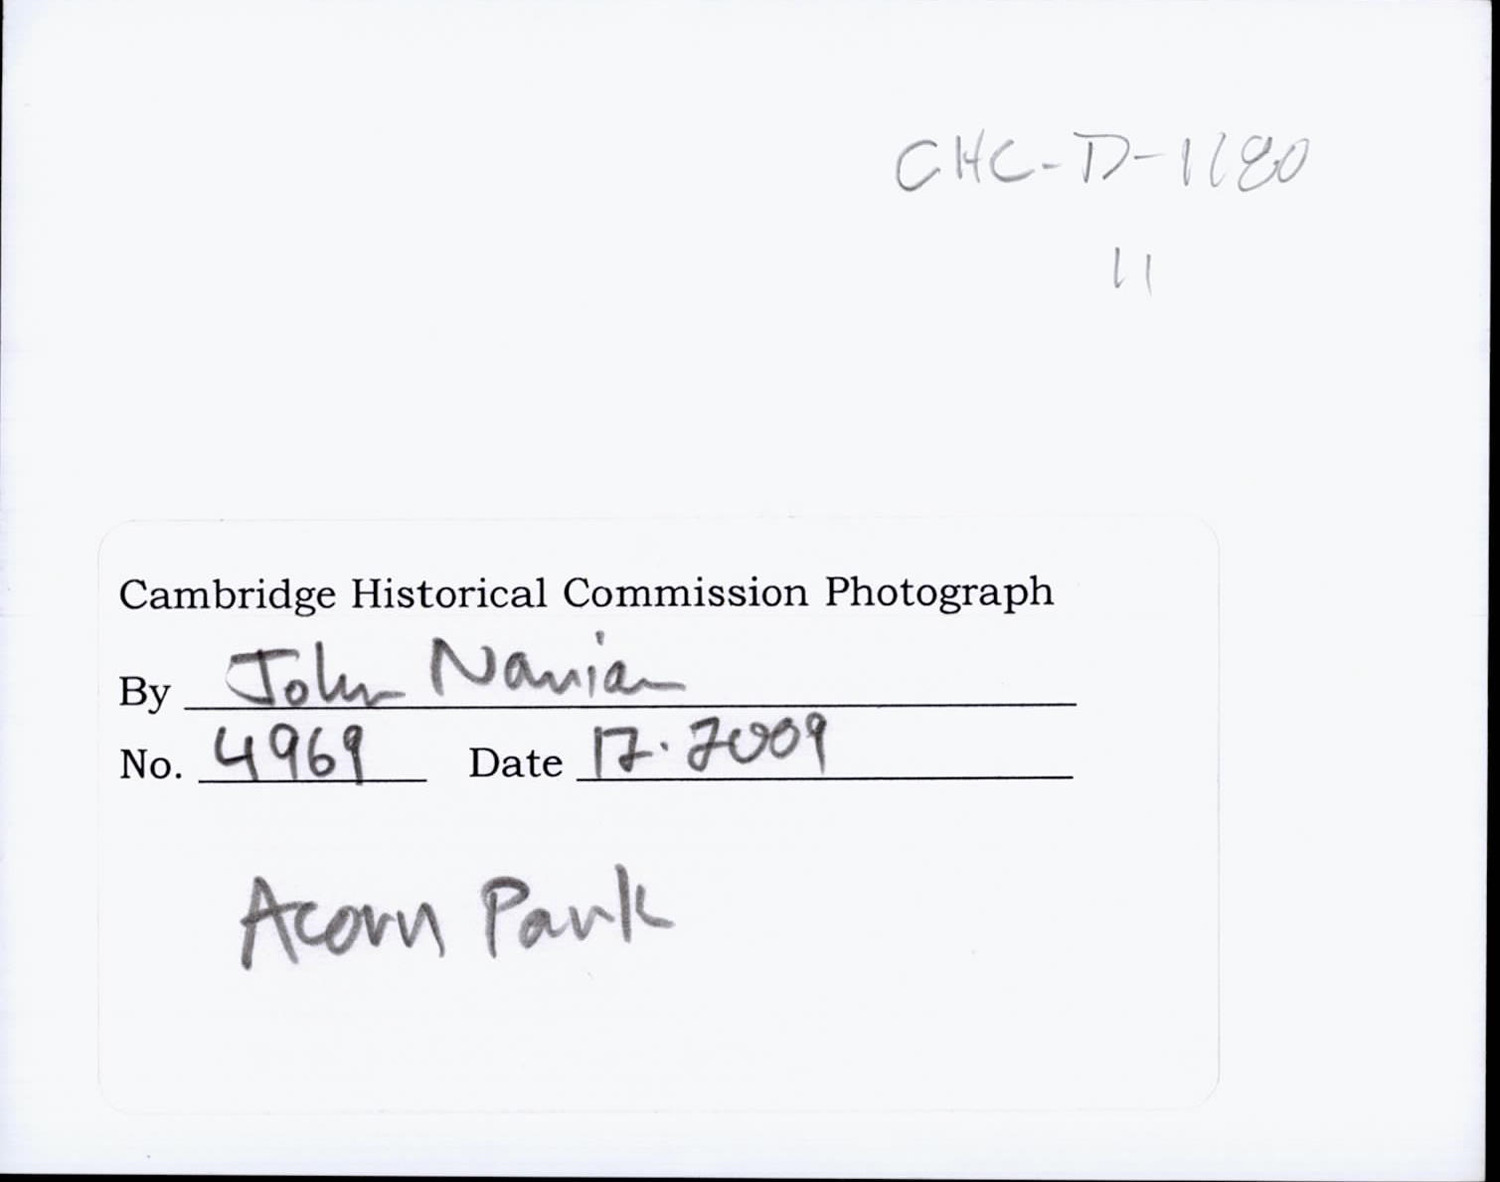 CHC-D-1180
11
Cambridge Historical Commission Photograph
By John Nanian
No. 4969 Date 12.2009
Acorn Park